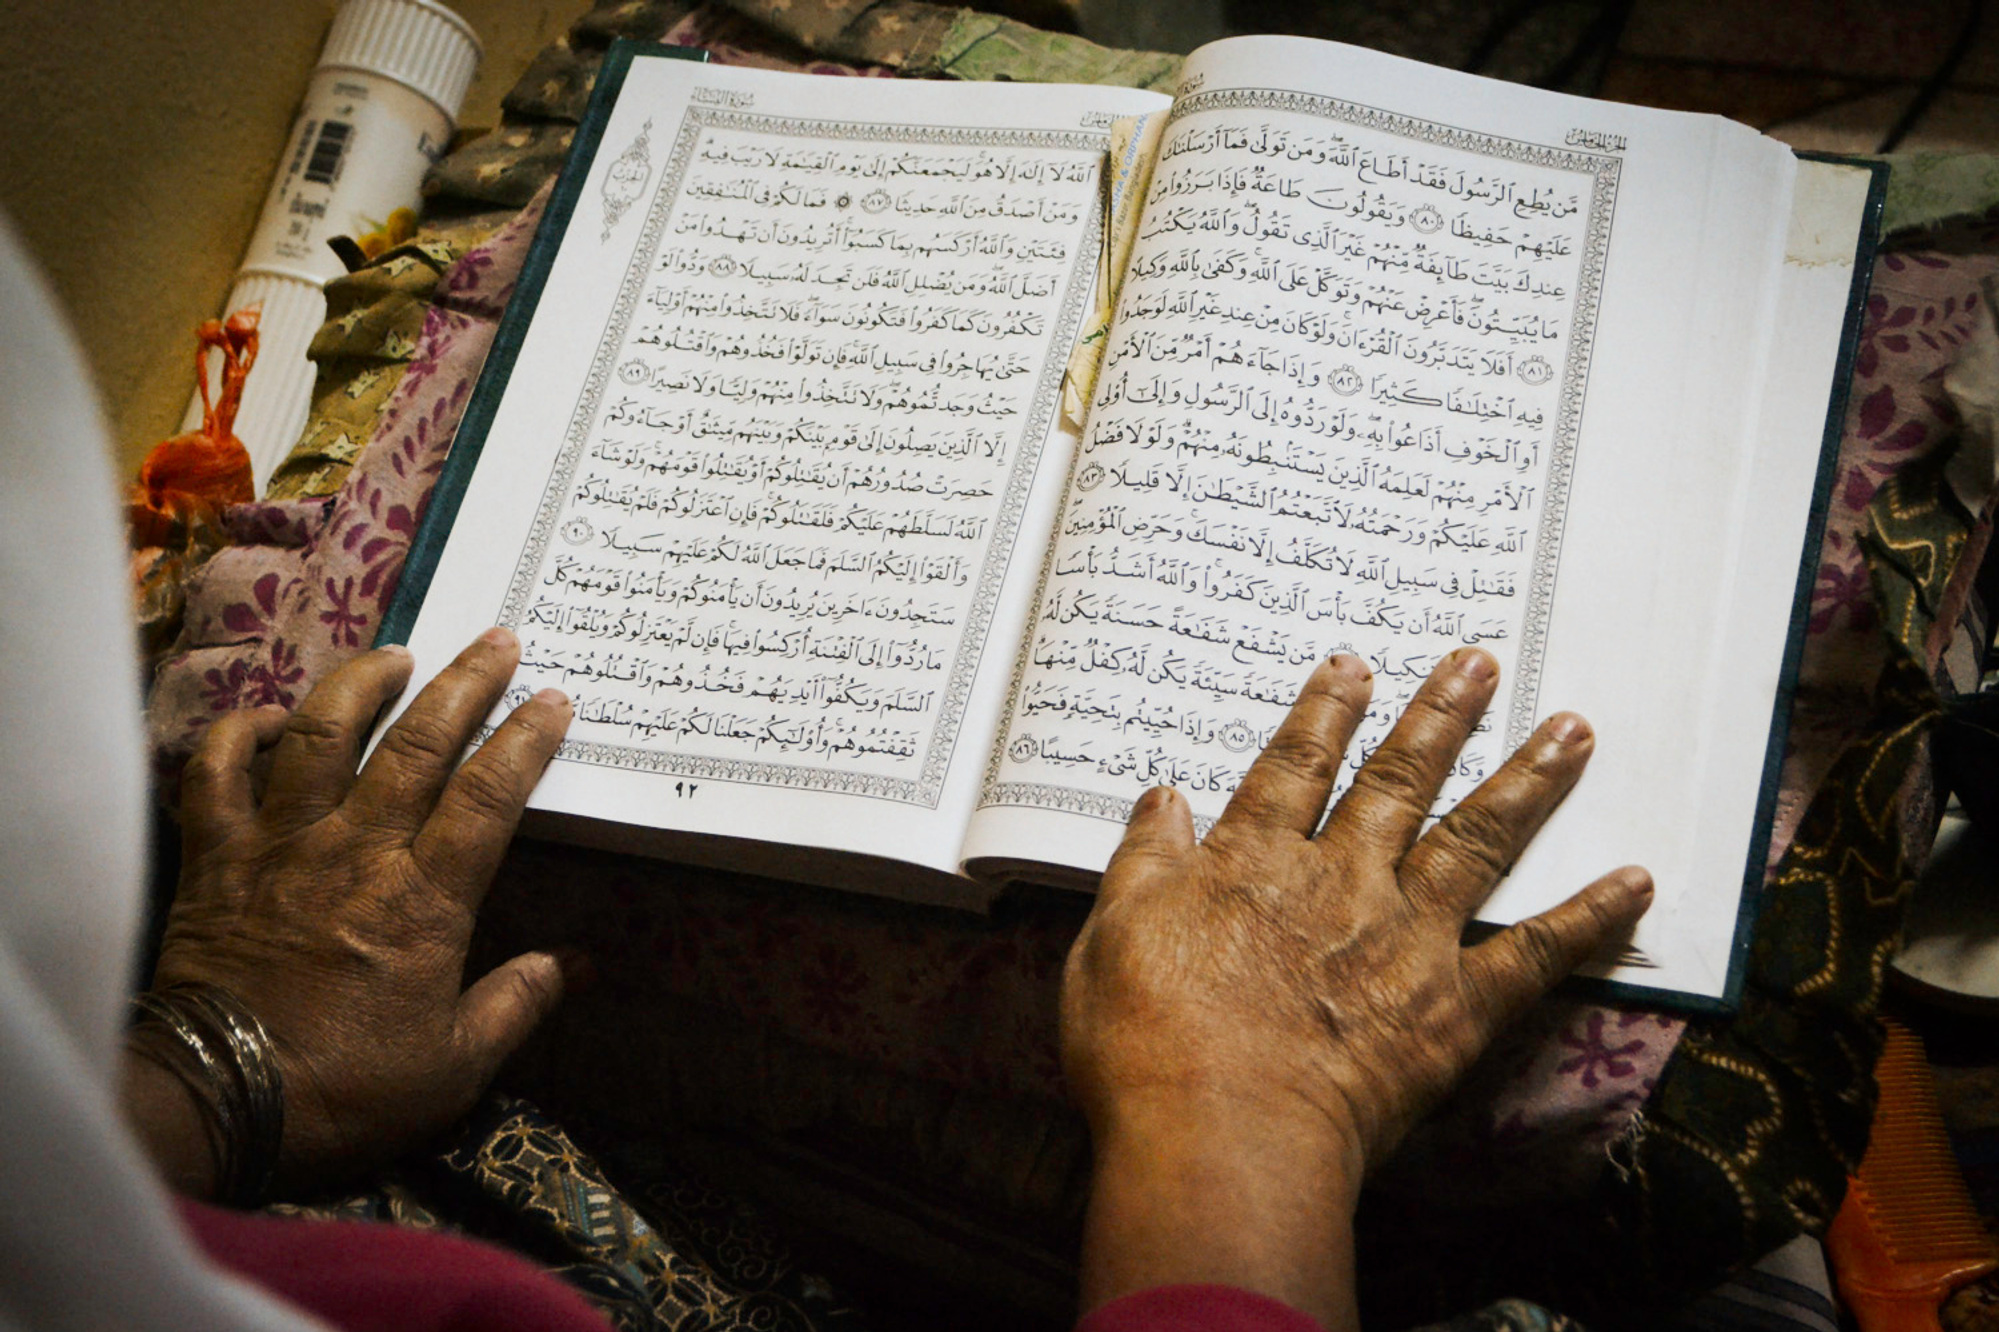 الجزء الخامس
مَّن يُطِعِ ٱلرَّسُولَ فَقَدْ أَطَاعَ ٱللَّهَۖ وَمَن تَوَلَّىٰ فَمَآ أَرْسَلْنَٰكَ
عَلَيْهِمْ حَفِيظًا ٨٠ وَيَقُولُونَ طَاعَةٌ فَإِذَا بَرَزُوا۟ مِنْ
عِندِكَ بَيَّتَ طَآئِفَةٌ مِّنْهُمْ غَيْرَ ٱلَّذِى تَقُولُۖ وَٱللَّهُ يَكْتُبُ
مَا يُبَيِّتُونَۖ فَأَعْرِضْ عَنْهُمْ وَتَوَكَّلْ عَلَى ٱللَّهِۚ وَكَفَىٰ بِٱللَّهِ وَكِيلًا
٨١ أَفَلَا يَتَدَبَّرُونَ ٱلْقُرْءَانَۚ وَلَوْ كَانَ مِنْ عِندِ غَيْرِ ٱللَّهِ لَوَجَدُوا۟
فِيهِ ٱخْتِلَٰفًا كَثِيرًا ٨٢ وَإِذَا جَآءَهُمْ أَمْرٌ مِّنَ ٱلْأَمْنِ
أَوِ ٱلْخَوْفِ أَذَاعُوا۟ بِهِۦۖ وَلَوْ رَدُّوهُ إِلَى ٱلرَّسُولِ وَإِلَىٰٓ أُو۟لِى
ٱلْأَمْرِ مِنْهُمْ لَعَلِمَهُ ٱلَّذِينَ يَسْتَنۢبِطُونَهُۥ مِنْهُمْۗ وَلَوْلَا فَضْلُ
ٱللَّهِ عَلَيْكُمْ وَرَحْمَتُهُۥ لَٱتَّبَعْتُمُ ٱلشَّيْطَٰنَ إِلَّا قَلِيلًا ٨٣
فَقَٰتِلْ فِى سَبِيلِ ٱللَّهِ لَا تُكَلَّفُ إِلَّا نَفْسَكَۚ وَحَرِّضِ ٱلْمُؤْمِنِينَۖ
عَسَى ٱللَّهُ أَن يَكُفَّ بَأْسَ ٱلَّذِينَ كَفَرُوا۟ۚ وَٱللَّهُ أَشَدُّ بَأْسًا
تَنكِيلًا مَّن يَشْفَعْ شَفَٰعَةً حَسَنَةً يَكُن لَّهُۥ
شَفَٰعَةً سَيِّئَةً يَكُن لَّهُۥ كِفْلٌ مِّنْهَاۗ
٨٥ وَإِذَا حُيِّيتُم بِتَحِيَّةٍ فَحَيُّوا۟
كَانَ عَلَىٰ كُلِّ شَىْءٍ حَسِيبًا ٨٦
الجزء الخامس
سورة النساء
ٱللَّهُ لَآ إِلَٰهَ إِلَّا هُوَۚ لَيَجْمَعَنَّكُمْ إِلَىٰ يَوْمِ ٱلْقِيَٰمَةِ لَا رَيْبَ فِيهِۗ
وَمَنْ أَصْدَقُ مِنَ ٱللَّهِ حَدِيثًا ٨٧ ۞ فَمَا لَكُمْ فِى ٱلْمُنَٰفِقِينَ
فِئَتَيْنِ وَٱللَّهُ أَرْكَسَهُم بِمَا كَسَبُوٓا۟ۚ أَتُرِيدُونَ أَن تَهْدُوا۟ مَنْ
أَضَلَّ ٱللَّهُۖ وَمَن يُضْلِلِ ٱللَّهُ فَلَن تَجِدَ لَهُۥ سَبِيلًا ٨٨ وَدُّوا۟ لَوْ
تَكْفُرُونَ كَمَا كَفَرُوا۟ فَتَكُونُونَ سَوَآءًۖ فَلَا تَتَّخِذُوا۟ مِنْهُمْ أَوْلِيَآءَ
حَتَّىٰ يُهَاجِرُوا۟ فِى سَبِيلِ ٱللَّهِۚ فَإِن تَوَلَّوْا۟ فَخُذُوهُمْ وَٱقْتُلُوهُمْ
حَيْثُ وَجَدتُّمُوهُمْۖ وَلَا تَتَّخِذُوا۟ مِنْهُمْ وَلِيًّا وَلَا نَصِيرًا ٨٩
إِلَّا ٱلَّذِينَ يَصِلُونَ إِلَىٰ قَوْمٍۭ بَيْنَكُمْ وَبَيْنَهُم مِّيثَٰقٌ أَوْ جَآءُوكُمْ
حَصِرَتْ صُدُورُهُمْ أَن يُقَٰتِلُوكُمْ أَوْ يُقَٰتِلُوا۟ قَوْمَهُمْۚ وَلَوْ شَآءَ
ٱللَّهُ لَسَلَّطَهُمْ عَلَيْكُمْ فَلَقَٰتَلُوكُمْۚ فَإِنِ ٱعْتَزَلُوكُمْ فَلَمْ يُقَٰتِلُوكُمْ
وَأَلْقَوْا۟ إِلَيْكُمُ ٱلسَّلَمَ فَمَا جَعَلَ ٱللَّهُ لَكُمْ عَلَيْهِمْ سَبِيلًا ٩٠
سَتَجِدُونَ ءَاخَرِينَ يُرِيدُونَ أَن يَأْمَنُوكُمْ وَيَأْمَنُوا۟ قَوْمَهُمْ كُلَّ
مَا رُدُّوٓا۟ إِلَى ٱلْفِتْنَةِ أُرْكِسُوا۟ فِيهَاۚ فَإِن لَّمْ يَعْتَزِلُوكُمْ وَيُلْقُوٓا۟ إِلَيْكُمُ
ٱلسَّلَمَ وَيَكُفُّوٓا۟ أَيْدِيَهُمْ فَخُذُوهُمْ وَٱقْتُلُوهُمْ حَيْثُ
ثَقِفْتُمُوهُمْۚ وَأُو۟لَٰٓئِكُمْ جَعَلْنَا لَكُمْ عَلَيْهِمْ سُلْطَٰنًا ٩١
٩٢